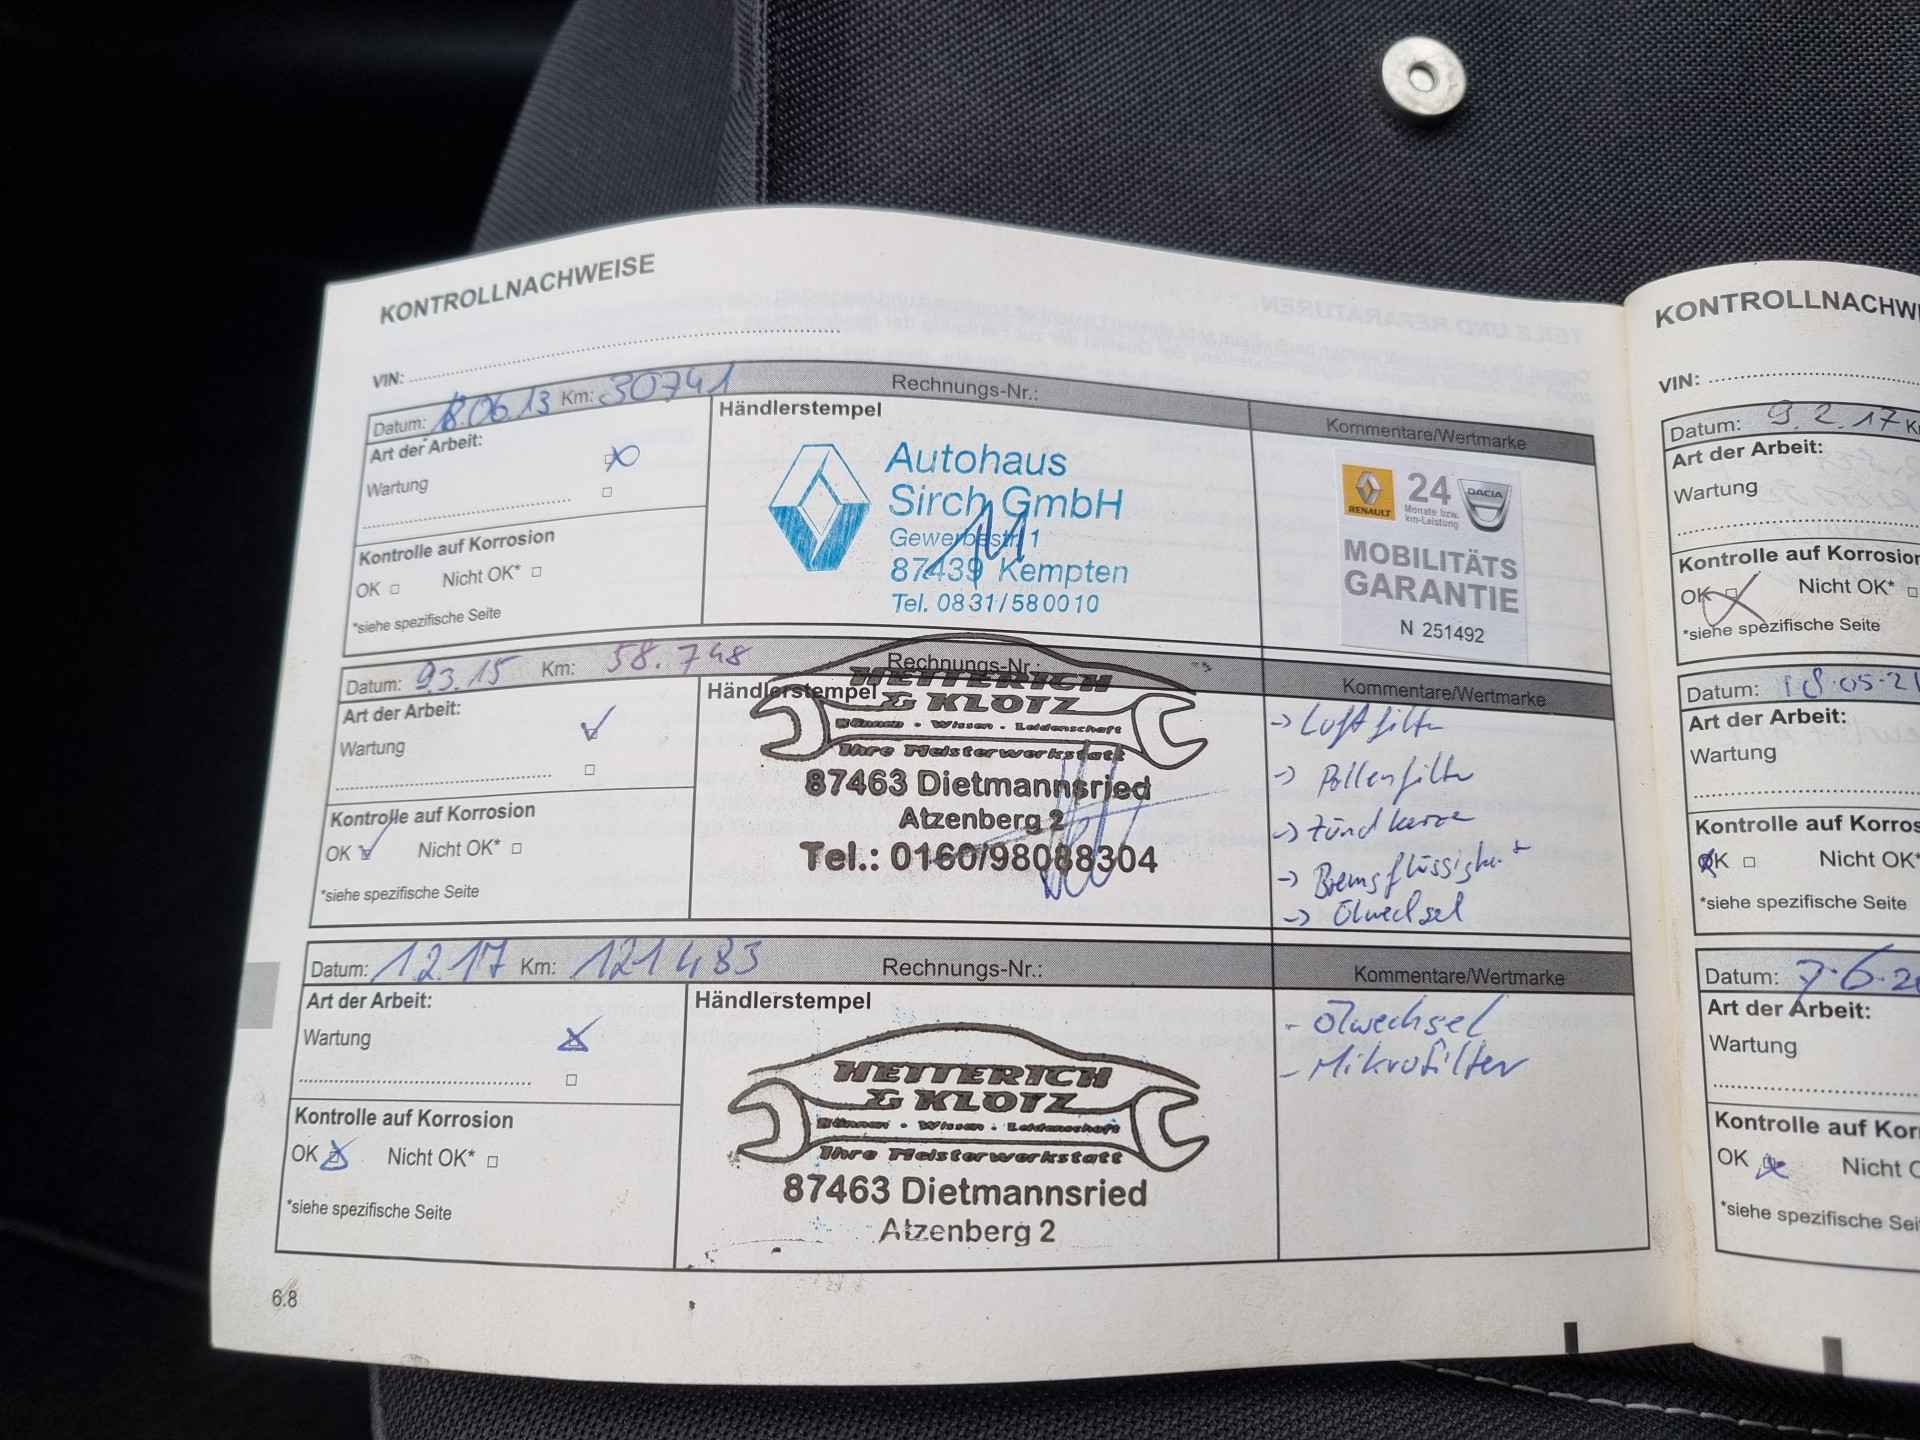 KONTROLLNACHWEISE
VIN:
Datum: 18.06.13 Km: 30741 Rechnungs-Nr.:
Kommentare/Wertmarke
Art der Arbeit:
Wartung
Kontrolle auf Korrosion
OK Nicht OK*
*siehe spezifische Seite
Händlerstempel
Autohaus
Sirch GmbH
Gewerbestr. 1
87439 Kempten
Tel. 0831/580010
RENAULT
24
Monate bzw.
km-Leistung
DACIA
MOBILITÄTS
GARANTIE
N 251492
Datum: 9.3.15 Km: 58.748 Rechnungs-Nr.:
Kommentare/Wertmarke
Art der Arbeit:
Wartung
Kontrolle auf Korrosion
OK Nicht OK*
*siehe spezifische Seite
Händlerstempel
HETTERICH
& KLOTZ
Können - Wissen - Leidenschaft
Ihre Meisterwerkstatt
87463 Dietmannsried
Atzenberg 2
Tel.: 0160/98088304
-> Luftfilter
-> Pollenfilter
-> Zündkerze
-> Bremsflüssigkeit
-> Ölwechsel
Datum: 1.2.17 Km: 121483 Rechnungs-Nr.:
Kommentare/Wertmarke
Art der Arbeit:
Wartung
Kontrolle auf Korrosion
OK Nicht OK*
*siehe spezifische Seite
Händlerstempel
HETTERICH
& KLOTZ
Können - Wissen - Leidenschaft
Ihre Meisterwerkstatt
87463 Dietmannsried
Atzenberg 2
- Ölwechsel
- Mikrofilter
6.8
KONTROLLNACHWE
VIN:
Datum: 9.2.17 K
Art der Arbeit:
Wartung
Kontrolle auf Korrosion
OK Nicht OK*
*siehe spezifische Seite
Datum: 18.05.21
Art der Arbeit:
Wartung
Kontrolle auf Korros
OK Nicht OK*
*siehe spezifische Seite
Datum: 7.6.20
Art der Arbeit:
Wartung
Kontrolle auf Kor
OK Nicht O
*siehe spezifische Sei